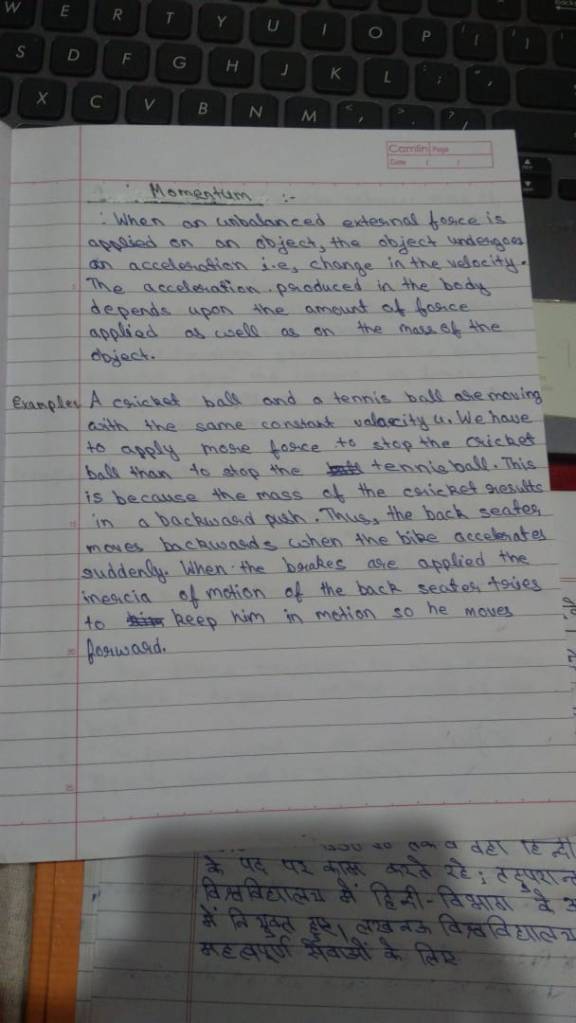 W E R T Y U I O P { [ } ]
S D F G H J K L : ; " '
X C V B N M < , > . ? /
Camlin Page
Date / /
Momentum :-
: When an unbalanced external force is
applied on an object, the object undergoes
an acceleration i.e, change in the velocity.
The acceleration produced in the body
depends upon the amount of force
applied as well as on the mass of the
object.
Examples A cricket ball and a tennis ball are moving
with the same constant velocity u. We have
to apply more force to stop the cricket
ball than to stop the tennis ball. This
is because the mass of the cricket results
in a backward push. Thus, the back seater
moves backwards when the bike accelerates
suddenly. When the brakes are applied the
inercia of motion of the back seater tries
to keep him in motion so he moves
forward.
व वहा हिन्दी
के पद पर काम करते रहे; तदुपरान्त
विश्वविद्यालय में हिन्दी-विभाग के अ
में नियुक्त हुए। लखनऊ विश्वविद्यालय
महत्वपूर्ण सेवाओं के लिए